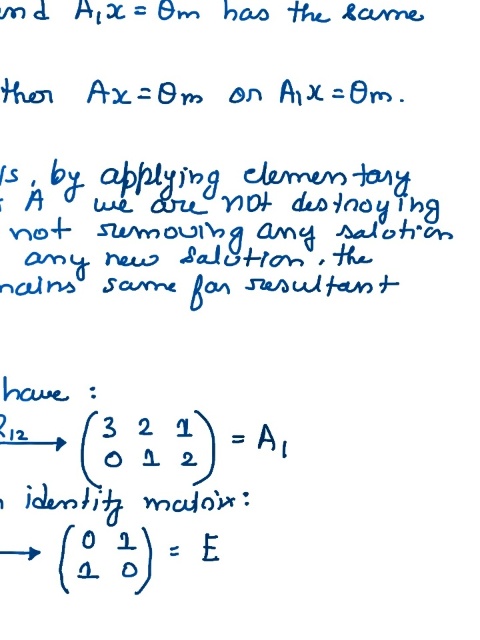 and A₁x = θm has the same
ther Ax = θm or A₁x = θm.
s, by applying elementary
A we are not destroying
not removing any solution
any new solution, the
mains same for resultant
have :
R₁₂ → (3 2 1
0 1 2) = A₁
identity matrix:
→ (0 1
1 0) = E